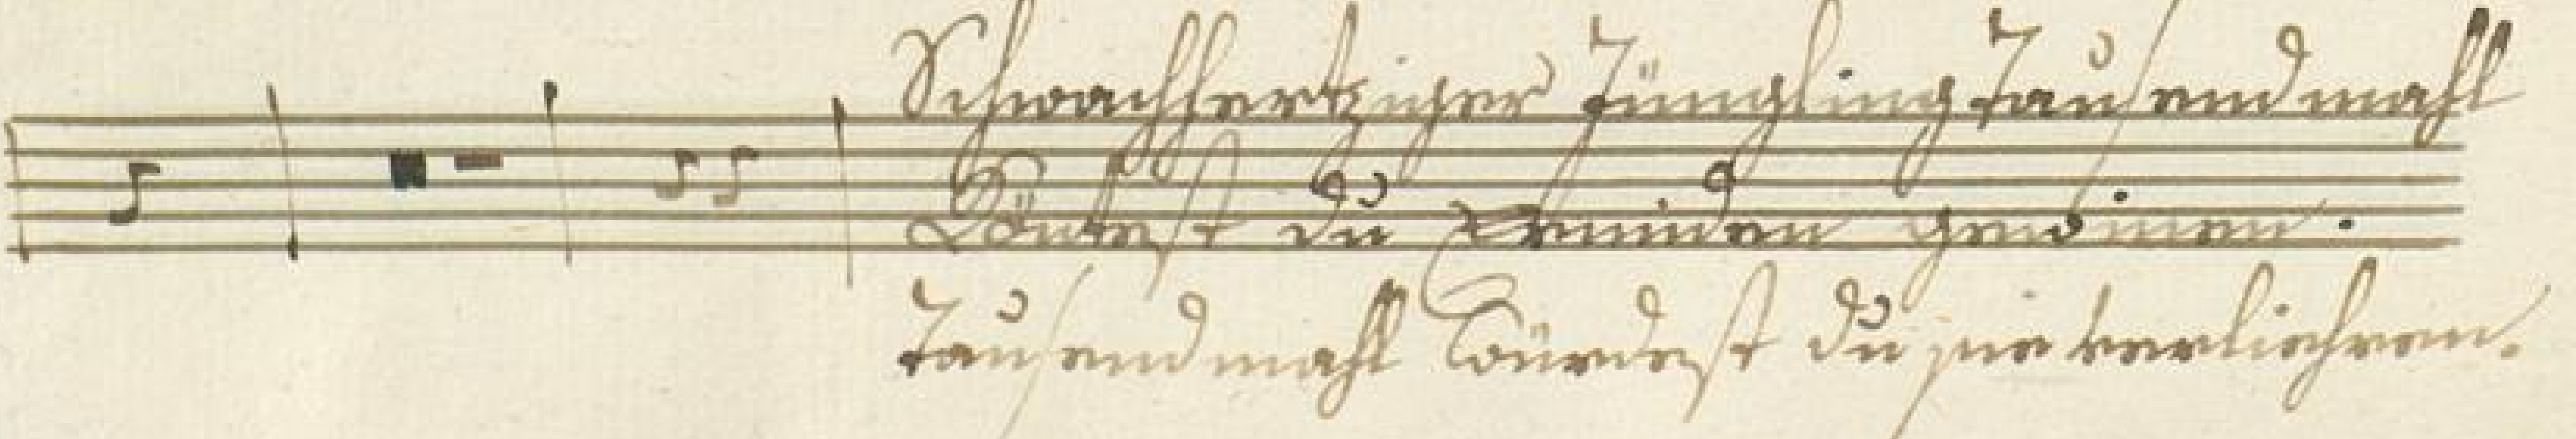 Schwachhertziger Jüngling Tausendmahl
Köntest du Freunden genomen.
Tausendmahl Würdest du sie verliehren.